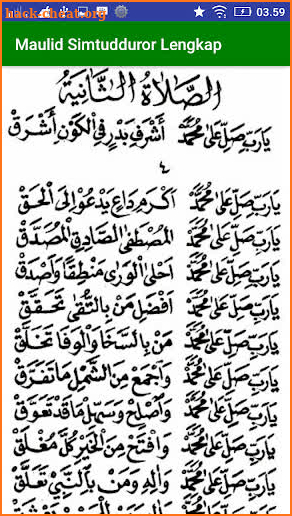 hackerheat.org
03.59
Maulid Simtudduror Lengkap
الصَّلَاةُ الثَّانِيَةُ
يَارَبِّ صَلِّ عَلَى مُحَمَّدْ أَشْرَفِ بَدْرٍ فِي الْكَوْنِ أَشْرَقْ
٤
يَارَبِّ صَلِّ عَلَى مُحَمَّدْ أَكْرَمِ دَاعٍ يَدْعُوْ إِلَى الْحَقْ
يَارَبِّ صَلِّ عَلَى مُحَمَّدْ الْمُصْطَفَى الصَّادِقِ الْمُصَدَّقْ
يَارَبِّ صَلِّ عَلَى مُحَمَّدْ أَحْلَى الْوَرَى مَنْطِقًا وَأَصْدَقْ
يَارَبِّ صَلِّ عَلَى مُحَمَّدْ أَفْضَلِ مَنْ بِالتُّقَى تَحَقَّقْ
يَارَبِّ صَلِّ عَلَى مُحَمَّدْ مَنْ بِالسَّخَا وَالْوَفَا تَخَلَّقْ
يَارَبِّ صَلِّ عَلَى مُحَمَّدْ وَاجْمَعْ مِنَ الشَّمْلِ مَا تَفَرَّقْ
يَارَبِّ صَلِّ عَلَى مُحَمَّدْ وَأَصْلِحْ وَسَهِّلْ مَا قَدْ تَعَوَّقْ
يَارَبِّ صَلِّ عَلَى مُحَمَّدْ وَافْتَحْ مِنَ الْخَيْرِ كُلَّ مُغْلَقْ
يَارَبِّ صَلِّ عَلَى مُحَمَّدْ وَآلِهِ وَمَنْ بِالنَّبِيِّ تَعَلَّقْ
يَارَبِّ صَلِّ عَلَى مُحَمَّدْ